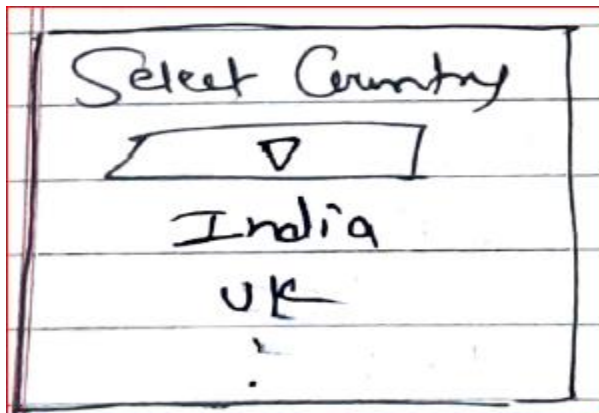 Select Country
India
UK